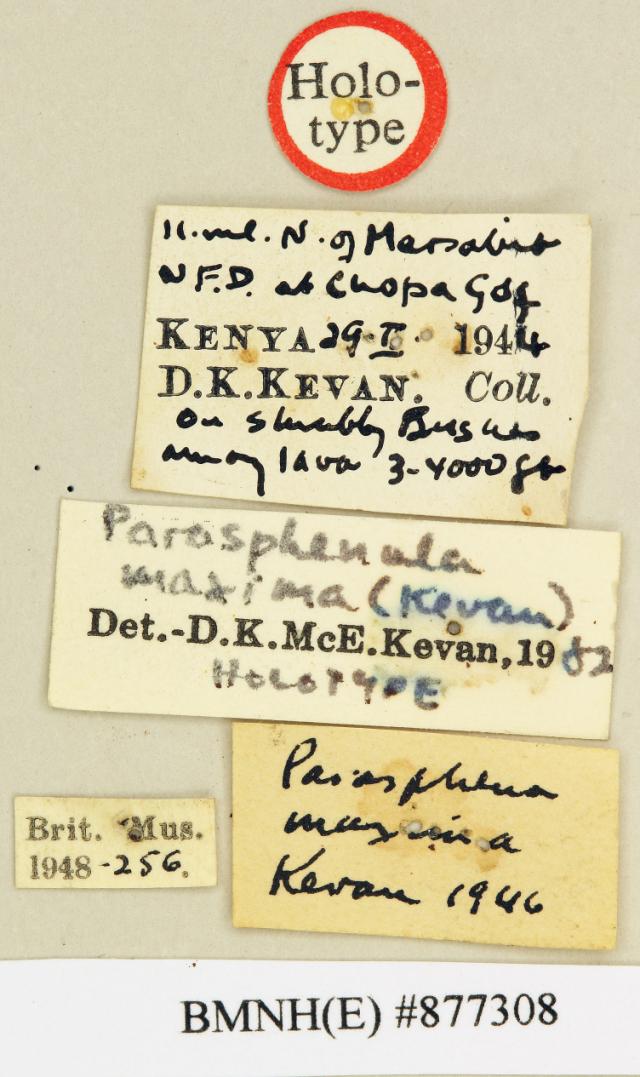 Holo-
type
11. ml. N. of Marsabit
N.F.D. at Chopa Gof
KENYA 29.II. 1944
D.K.KEVAN. Coll.
On shrubby Bushes
among lava 3-4000 ft
Parasphenula
maxima (Kevan)
Det.-D.K.McE.Kevan, 1982
HOLOTYPE
Parasphena
maxima
Kevan 1946
Brit. Mus.
1948-256.
BMNH(E) #877308